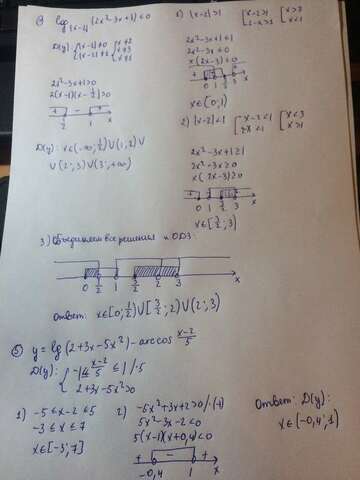 4) log|x-2| (2x²-3x+1) ≤ 0
D(y): { |x-2| ≠ 0 { x ≠ 2
|x-2| ≠ 1 x ≠ 3
x ≠ 1
2x²-3x+1>0
2(x-1)(x-½)>0
+ - +
½ 1 x
D(y): x∈(-∞; ½)∪(1; 2)∪
∪(2; 3)∪(3; +∞)
1) |x-2|>1 [ x-2>1 [ x>3
2-x>1 x<1
2x²-3x+1 ≤ 1
2x²-3x ≤ 0
x(2x-3) ≤ 0
+ +
0 1 3/2 3 x
x∈[0; 1)
2) |x-2|<1 { x-2<1 { x<3
x>1
2x²-3x+1 ≥ 1
2x²-3x ≥ 0
x(2x-3) ≥ 0
0 1 3/2 3 x
x∈[3/2; 3)
3) Объединяем все решения и ОДЗ:
0 ½ 1 3/2 2 3 x
Ответ: x∈[0; ½)∪[3/2; 2)∪(2; 3)
5) y = lg(2+3x-5x²) - arccos (x-2)/5
D(y): { -1 ≤ (x-2)/5 ≤ 1 /·5
2+3x-5x²>0
1) -5 ≤ x-2 ≤ 5
-3 ≤ x ≤ 7
x∈[-3; 7]
2) -5x²+3x+2>0 /·(-1)
5x²-3x-2<0
5(x-1)(x+0,4)<0
+ - +
-0,4 1 x
Ответ: D(y):
x∈(-0,4; 1)